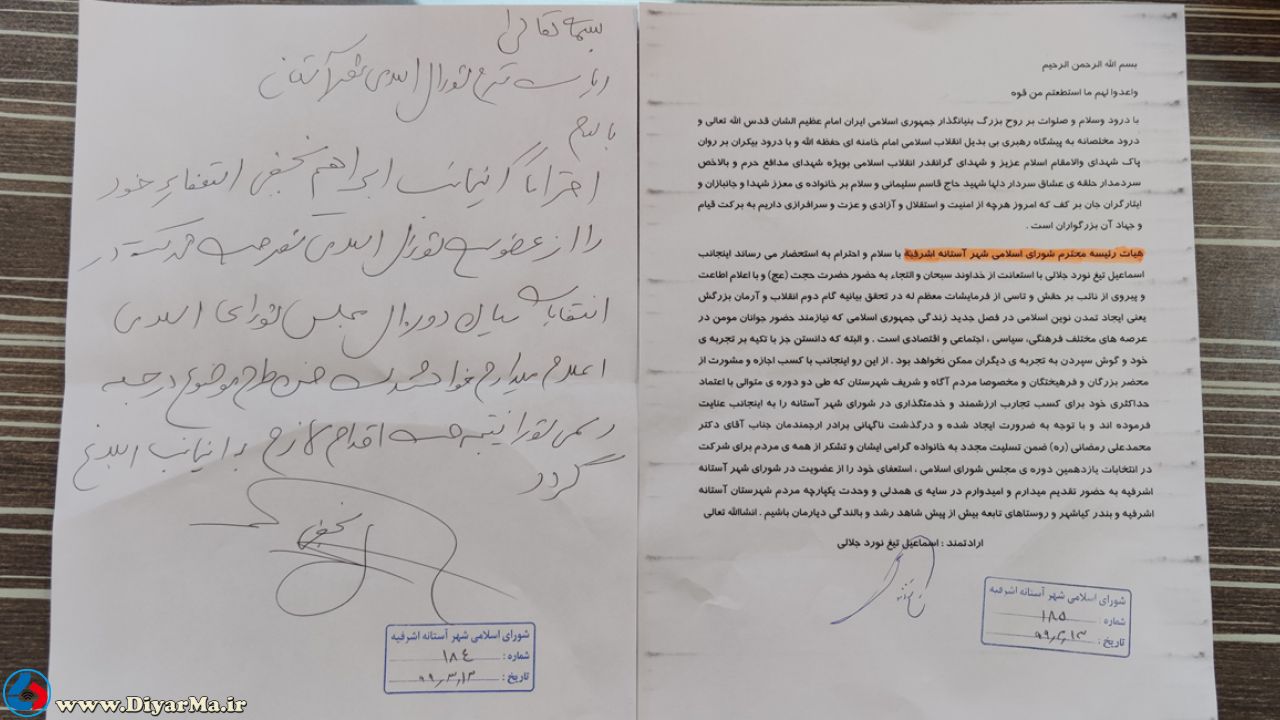 بسم الله الرحمن الرحیم
واعدوا لهم ما استطعتم من قوه
با درود وسلام و صلوات بر روح بزرگ بنیانگذار جمهوری اسلامی ایران امام عظیم الشان قدس الله تعالی و
درود مخلصانه به پیشگاه رهبری بی بدیل انقلاب اسلامی امام خامنه ای حفظه الله و با درود بیکران بر روان
پاک شهدای والامقام اسلام عزیز و شهدای گرانقدر انقلاب اسلامی بویژه شهدای مدافع حرم و بالاخص
سردمدار حلقه ی عشاق سردار دلها شهید حاج قاسم سلیمانی و سلام بر خانواده ی معزز شهدا و جانبازان و
ایثارگران جان بر کف که امروز هرچه از امنیت و استقلال و آزادی و عزت و سرافرازی داریم به برکت قیام
و جهاد آن بزرگواران است .
هیات رئیسه محترم شورای اسلامی شهر آستانه اشرفیه با سلام و احترام به استحضار می رساند اینجانب
اسماعیل تیغ نورد جلالی با استعانت از خداوند سبحان و التجاء به حضور حضرت حجت (عج) و با اعلام اطاعت
و پیروی از نائب بر حقش و تاسی از فرمایشات معظم له در تحقق بیانیه گام دوم انقلاب و آرمان بزرگش
یعنی ایجاد تمدن نوین اسلامی در فصل جدید زندگی جمهوری اسلامی که نیازمند حضور جوانان مومن در
عرصه های مختلف فرهنگی، سیاسی ، اجتماعی و اقتصادی است . و البته که دانستن جز با تکیه بر تجربه ی
خود و گوش سپردن به تجربه ی دیگران ممکن نخواهد بود . از این رو اینجانب با کسب اجازه و مشورت از
محضر بزرگان و فرهیختگان و مخصوصا مردم آگاه و شریف شهرستان که طی دو دوره ی متوالی با اعتماد
حداکثری خود برای کسب تجارب ارزشمند و خدمتگذاری در شورای شهر آستانه را به اینجانب عنایت
فرموده اند و با توجه به ضرورت ایجاد شده و درگذشت ناگهانی برادر ارجمندمان جناب آقای دکتر
محمدعلی رمضانی (ره) ضمن تسلیت مجدد به خانواده گرامی ایشان و تشکر از همه ی مردم برای شرکت
در انتخابات یازدهمین دوره ی مجلس شورای اسلامی ، استعفای خود را از عضویت در شورای شهر آستانه
اشرفیه به حضور تقدیم میدارم و امیدوارم در سایه ی همدلی و وحدت یکپارچه مردم شهرستان آستانه
اشرفیه و بندر کیاشهر و روستاهای تابعه بیش از پیش شاهد رشد و بالندگی دیارمان باشیم . انشاالله تعالی
ارادتمند : اسماعیل تیغ نورد جلالی
شورای اسلامی شهر آستانه اشرفیه
شماره : ۱۸۵
تاریخ : ۹۹,۳,۱۳
بسمه تعالی
ریاست محترم شورای اسلامی شهر آستانه
با سلام
احتراماً اینجانب ابراهیم نجفی استعفای خود
را از عضویت شورای اسلامی شهر جهت شرکت در
انتخابات میان دوره ای مجلس شورای اسلامی
اعلام میدارم خواهشمندست ضمن طرح موضوع در جلسه
رسمی شورا نتیجه جهت اقدام لازم به اینجانب ابلاغ
گردد
نجفی
شورای اسلامی شهر آستانه اشرفیه
شماره : ۱۸۴
تاریخ : ۹۹,۳,۱۳
www.DiyarMa.ir